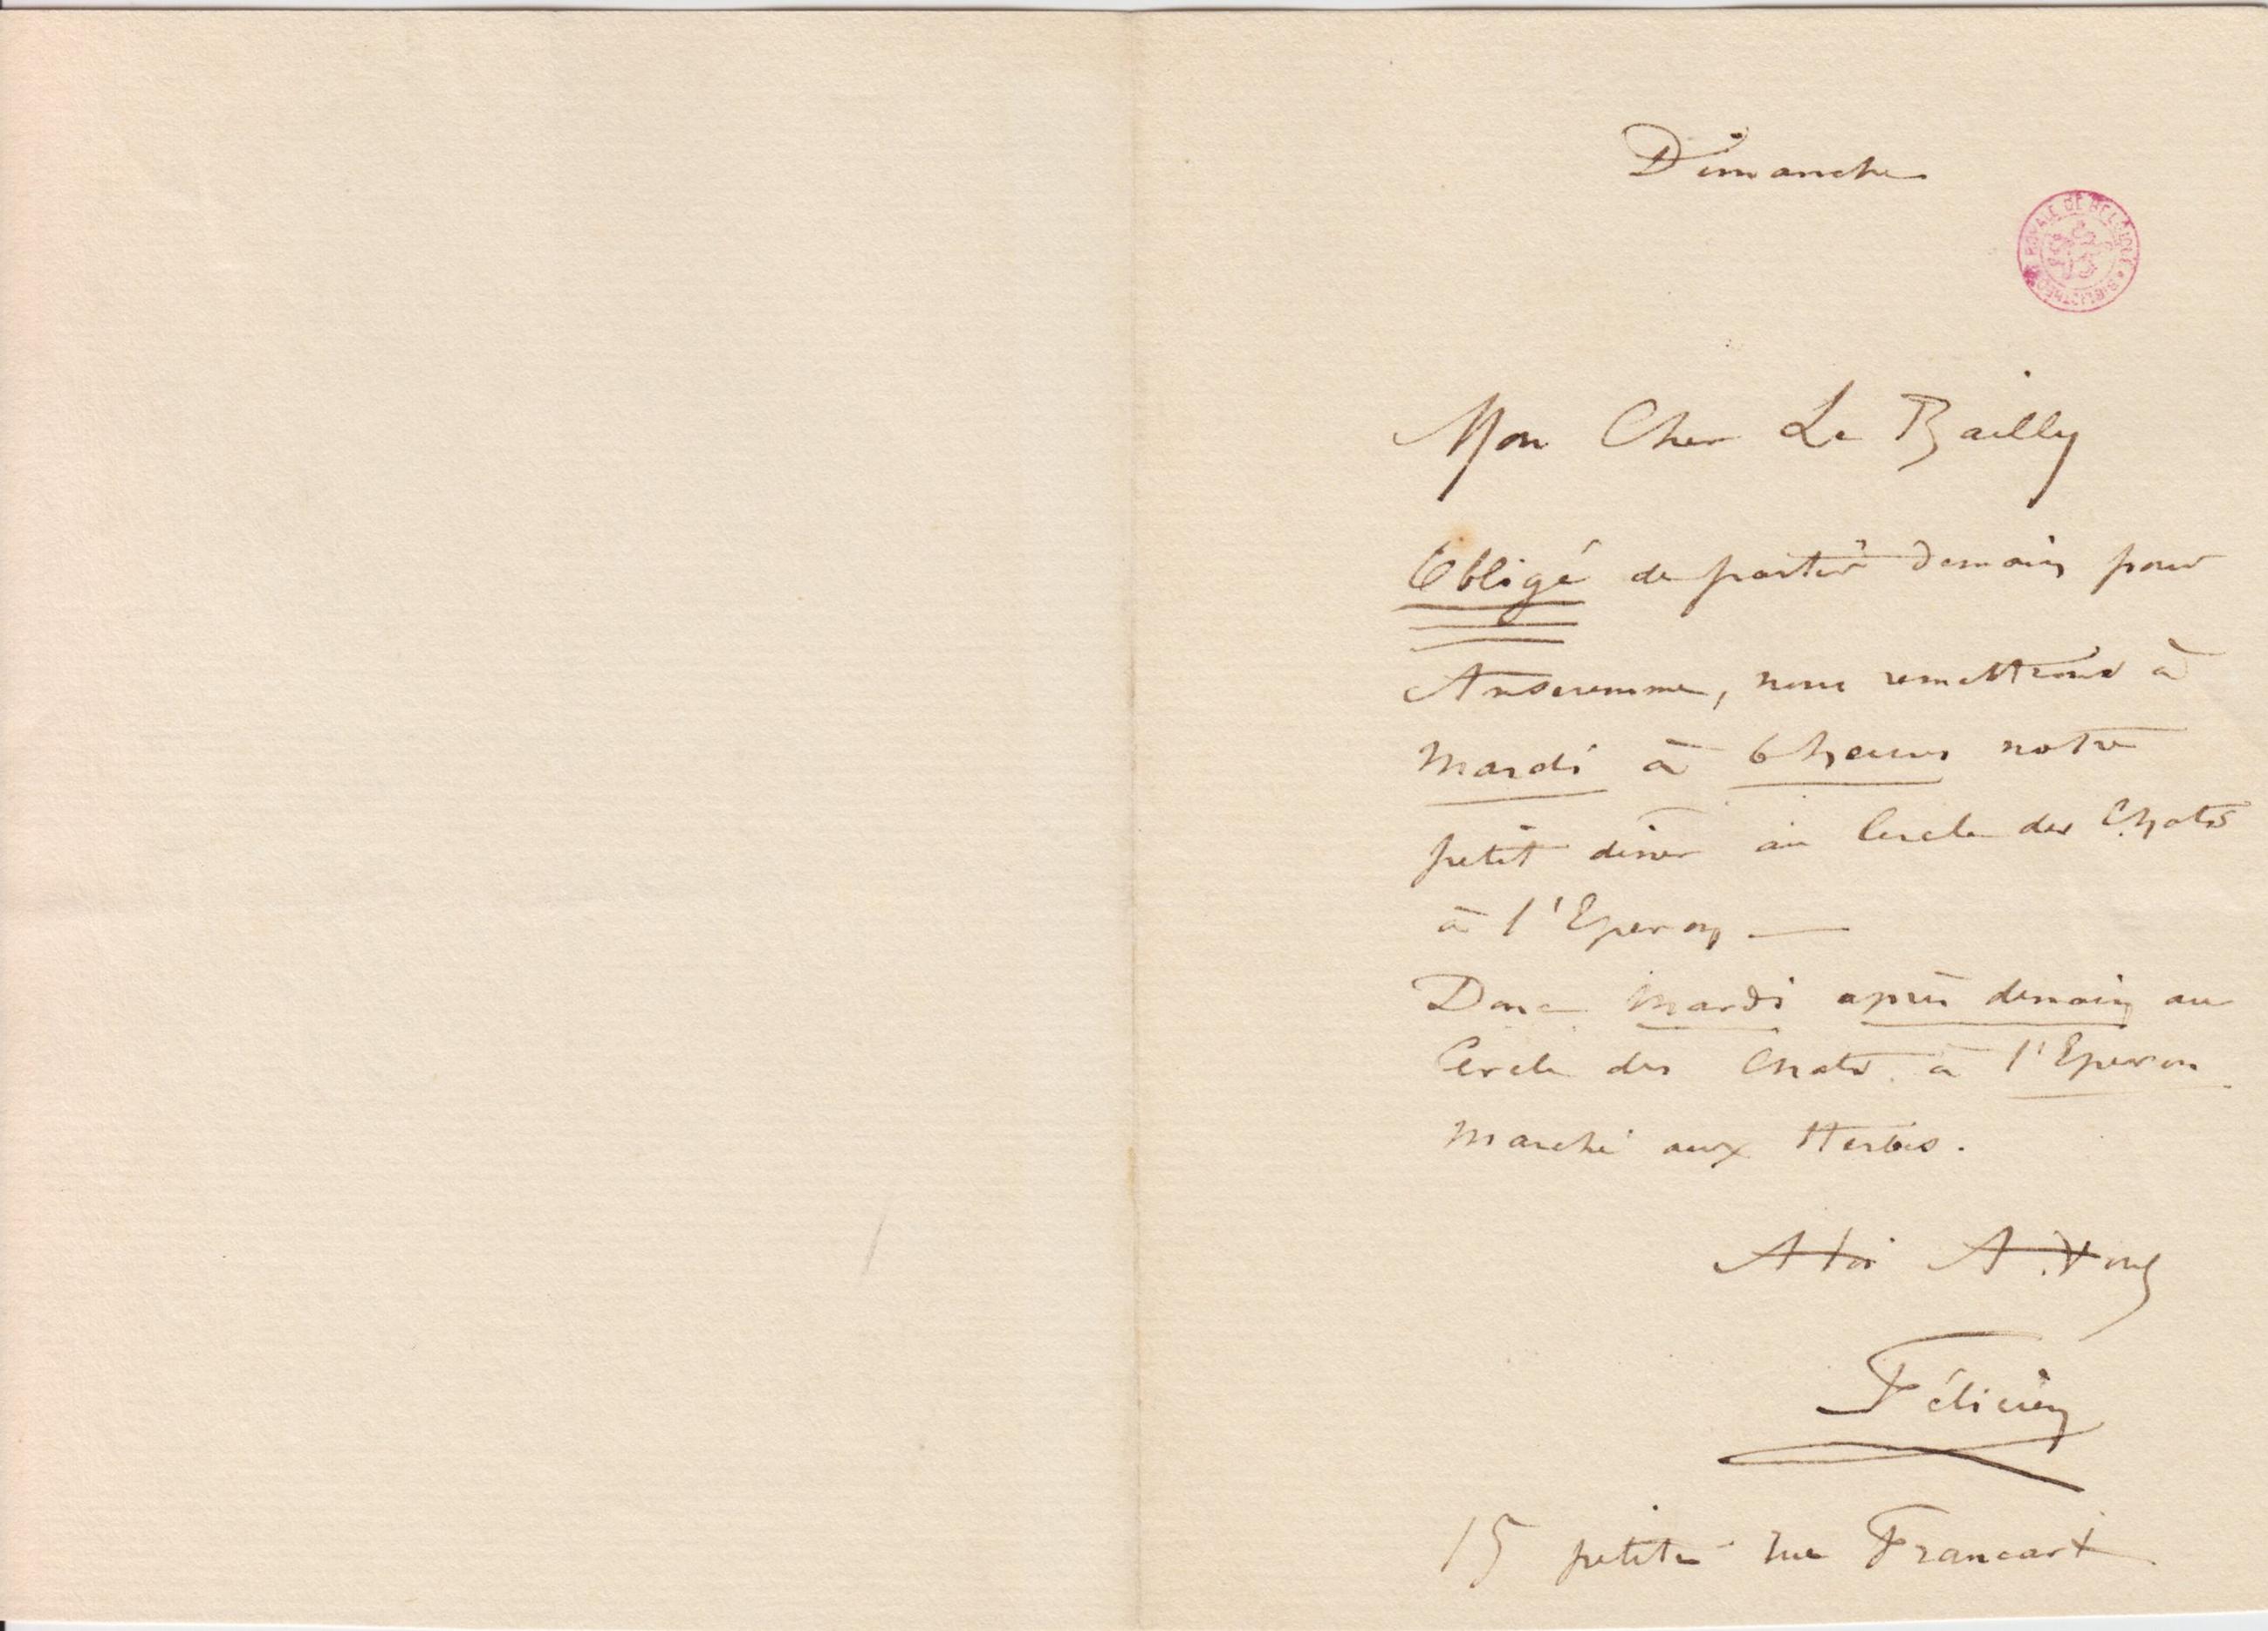 Dimanche
BIBLIOTHÈQUE ROYALE DE BELGIQUE
Mon Cher Le Bailly
Obligé de partir demain pour
Anseremme, nous remettrons à
Mardi à 6 heures notre
petit diner au Cercle des Chats
à l'Eperon —
Donc Mardi après demain au
Cercle des Chats à l'Eperon
Marché aux Herbes.
A toi A Vous
Félicien
15 petite rue Francart